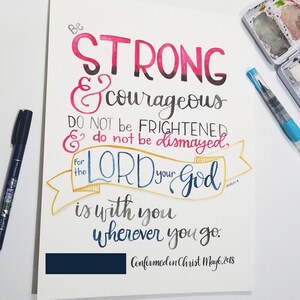 Be
STRONG
& courageous
DO NOT be FRIGHTENED
& do not be dismayed,
for the LORD your God
is with you
wherever you go.
Confirmed in Christ May 6, 2018